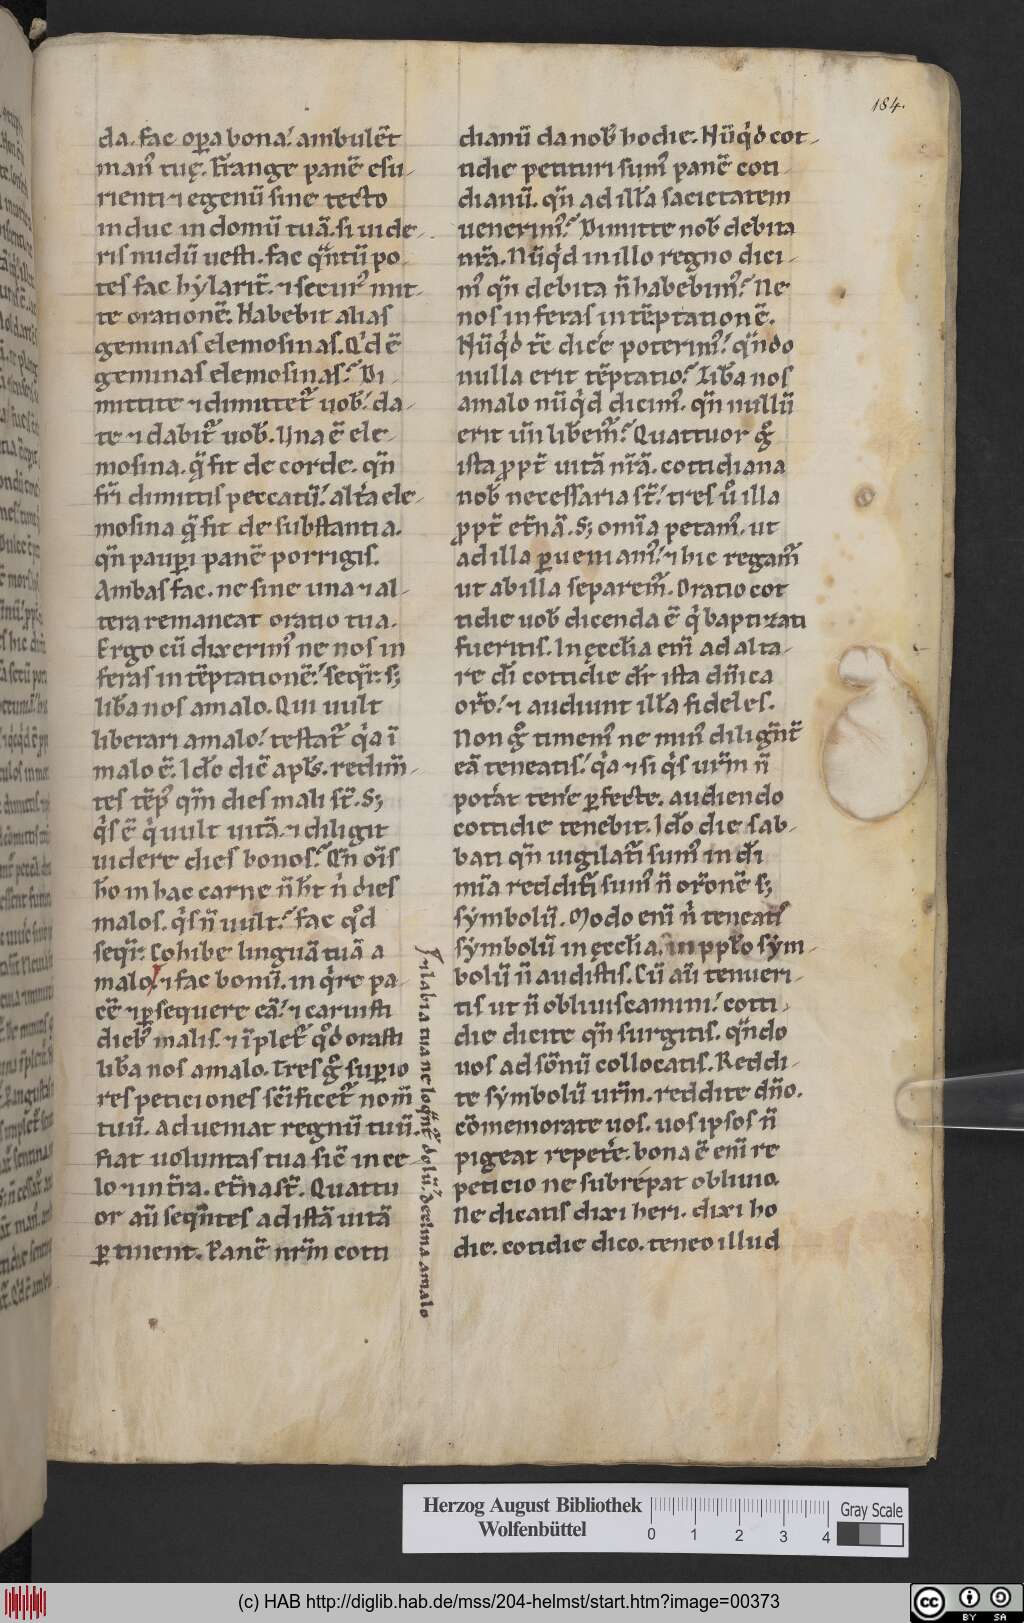 184.
da. fac oꝑa bona. ambulēt
man᷒ tuę. Frange panē esu-
rienti ⁊ egenū sine tecto
induc in domū tuā. si uide-
ris nudū uesti. fac qn̄tū po-
tes fac hylarit̄. ⁊ secur᷒ mit-
te orationē. Habebit alias
geminas elemosinas. Qd̓ ē
geminas elemosinas? Di-
mittite ⁊ dimittet᷒ uob̄. da-
te ⁊ dabit᷒ uob̄. Una ē ele-
mosina. q̄ fit de corde. qn̄
fr̄i dimittis peccatū. alt̓a ele-
mosina q̄ fit de substantia.
qn̄ pauꝑi panē porrigis.
Ambas fac. ne sine una ⁊ al-
tera remaneat oratio tua.
Ergo cū dixerim᷒ ne nos in
feras in tēptationē. seqr̄. s;
lib̄a nos amalo. Qui uult
liberari amalo. testat᷒ q̓a ī
malo ē. Ido̓ dic̄ apl̄s. redim̄-
tes tēp᷒ qm̄ dies mali st̄. S;
q̓s ē q̓ uult uitā. ⁊ diligit
uidere dies bonos? Qn̄ om̄s
ho̓ in hac carne n̄ ht̄ n̓ dies
malos. q̓s n̄ uult? fac qd̓
seqr̄. Cohibe linguā tuā a
malo. ⁊ fac bonū. inq̓re pa-
cē ⁊ ꝑsequere eā. ⁊ caruisti
dieb᷒ malis. ⁊ īplet᷒ qd̓ orasti
lib̄a nos amalo. Tres g̊ suꝑio
res peticiones sc̄ificet᷒ nom̄
tuū. adueniat regnū tuū.
Fiat uoluntas tua sic̄ in ce-
lo ⁊ in tr̄a. et̄na st̄. Quattu
or au̅ seqn̄tes ad istā uitā
ꝑtinent. Panē nr̄m cotti
⁊ labia tua ne loqn̄t᷒ dolū. declina amalo
dianū da nob̄ hodie. Nūq̓d cot-
tidie petituri sum᷒ panē coti-
dianū. qn̄ ad ill̄a sacietatem
uenerim᷒? Dimitte nob̄ debita
nr̄a. Nūq̓d in illo regno dici-
m᷒ qn̄ debita n̄ habebim᷒? Ne
nos inferas in tēptationē.
Nūq̓d tc̄ dic̓e poterim᷒. qn̄do
nulla erit tēptatio? Lib̄a nos
amalo nūq̓d dicim᷒. qn̄ nullū
erit un̄ lib̄em᷒? Quattuor g̊
ista ꝓpt̄ uitā nr̄ā. cottidiana
nob̄ necessaria st̄. tres u̓o illa
ꝓpt̄ et̄nā. S; om̄ia petam᷒. ut
ad illa ꝑueniam᷒. ⁊ hic regam᷒
ut ab illa separem᷒. Oratio cot
tidie uob̄ dicenda ē q̓ baptizati
fueritis. In ęccl̄ia enī ad alta-
re dī cottidie dr̄ ista dn̄ica
or̄o. ⁊ audiunt ill̄a fideles.
Non g̊ timem᷒ ne min᷒ dilign̄t̄
eā teneatis. q̓a ⁊ si q̓s ur̄m n̄
pot̓at ten̓e ꝑfecte. audiendo
cottidie tenebit. Ido̓ die sab-
bati qn̄ uigilat̓i sum᷒ in dī
mīa reddit̓i sum᷒ n̄ or̄onē s;
symbolū. Modo enī n̓ teneatis
symbolū in ęccl̄ia. in ppl̄o sym-
bolū n̄ audistis. Cū au̅ tenueri-
tis ut n̄ obliuiscamini. cotti-
die dicite qn̄ surgitis. qn̄do
uos ad som̄nū collocatis. Reddi-
te symbolū ur̄m. reddite dn̄o.
cōmemorate uos. uos ipsos n̄
pigeat repet̓e. bona ē enī re
peticio ne subrepat obliuio.
Ne dicatis dixi heri. dixi ho
die. cotidie dico. teneo illud
Herzog August Bibliothek
Wolfenbüttel
0 1 2 3 4
Gray Scale
(c) HAB http://diglib.hab.de/mss/204-helmst/start.htm?image=00373
cc BY SA